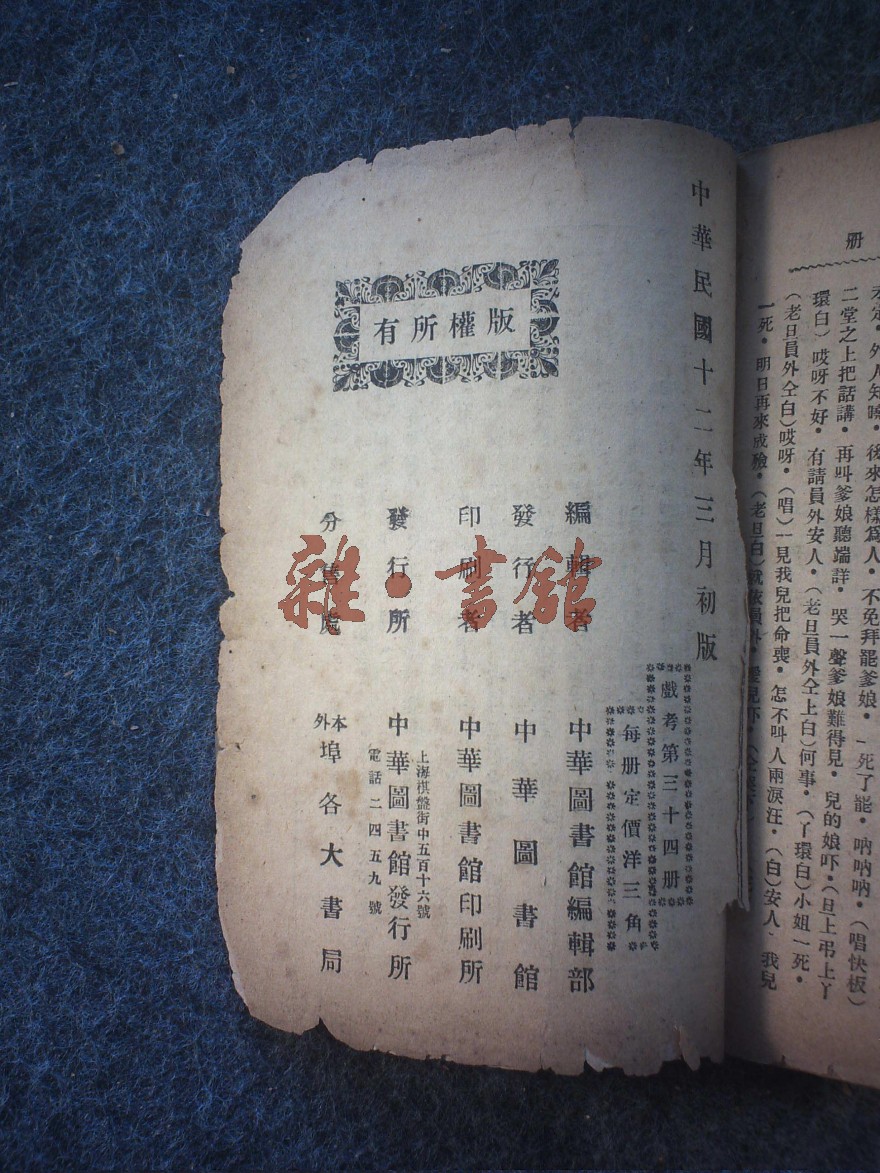 册
未定•外人知嘵•後來怎樣爲人•不免拜罷爹娘•一死了罷•吶吶吶•(唱快板)
二堂之上把話講•再叫爹娘聽端詳•哭一聲爹娘難得見•兒的娘吓•(旦上弔上丫
環白)哎呀不好•有請員外安人•(老旦員外仝上白)何事•(丫環白)小姐一死•
(老旦員外仝白)哎呀•(唱)一見我兒把命喪•怎不叫人兩淚汪•(白)安人•我兒
一死•明日再來成殮•(老旦白)就依員外•
中華民國十二年三月初版
戲考第三十四册
每册定價洋三角
編輯者 中華圖書館編輯部
發行者 中華圖書館
印刷者 中華圖書館印刷所
發行所 中華圖書館發行所
上海棋盤街中五百十六號
電話二四五九號
分售處 本外埠各大書局
版權所有
雜•書館